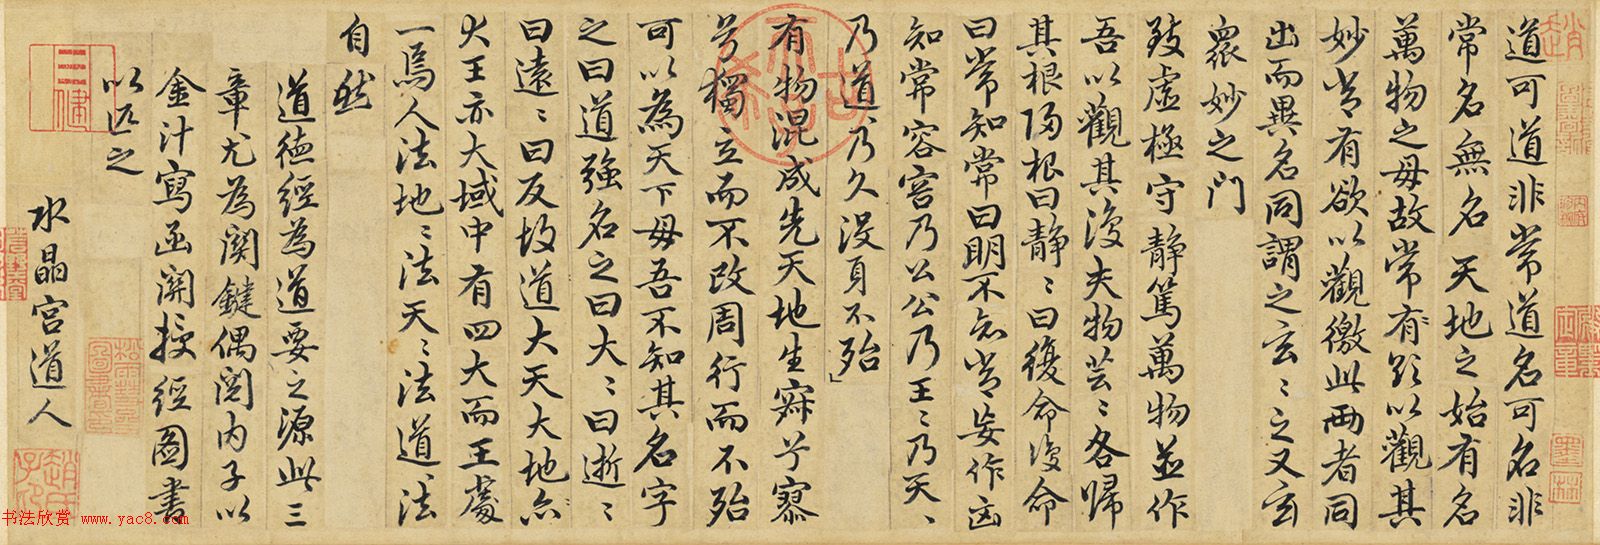 道可道非常道名可名非
常名無名天地之始有名
萬物之母故常有欲以觀其
妙常有欲以觀徼此兩者同
出而異名同謂之玄〻之又玄
衆妙之門
致虛極守靜篤萬物並作
吾以觀其復夫物芸〻各歸
其根歸根曰靜〻曰復命復命
曰常知常曰明不知常妄作凶
知常容容乃公公乃王〻乃天〻
乃道〻乃久没身不殆
有物混成先天地生寂兮寥
兮獨立而不改周行而不殆
可以為天下母吾不知其名字
之曰道強名之曰大〻曰逝〻
曰遠〻曰反故道大天大地亦
大王亦大域中有四大而王處
一焉人法地〻法天〻法道〻法
自然
道德經為道要之源此三
章尤為関鍵偶閲内子以
金汁寫函関授經圖書
以匹之
水晶宮道人
书法欣赏 www.yac8.com